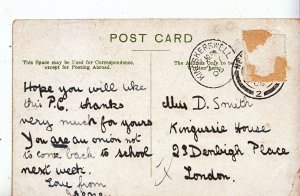 POST CARD
This Space may be Used for Correspondence,
except for Posting Abroad.
The Address Only to be
Written here.
KINGSKERSWELL
2
Hope you will like
this P.C. thanks
very much for yours
You are an onion not
to come back to school
next week.
Love from
Miss D. Smith
Kingussie House
23 Denbigh Place
London.